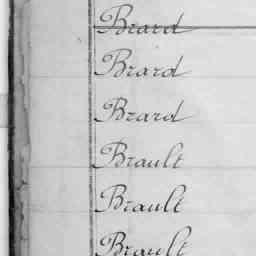 Brard
Brard
Brard
Brault
Brault
Brault